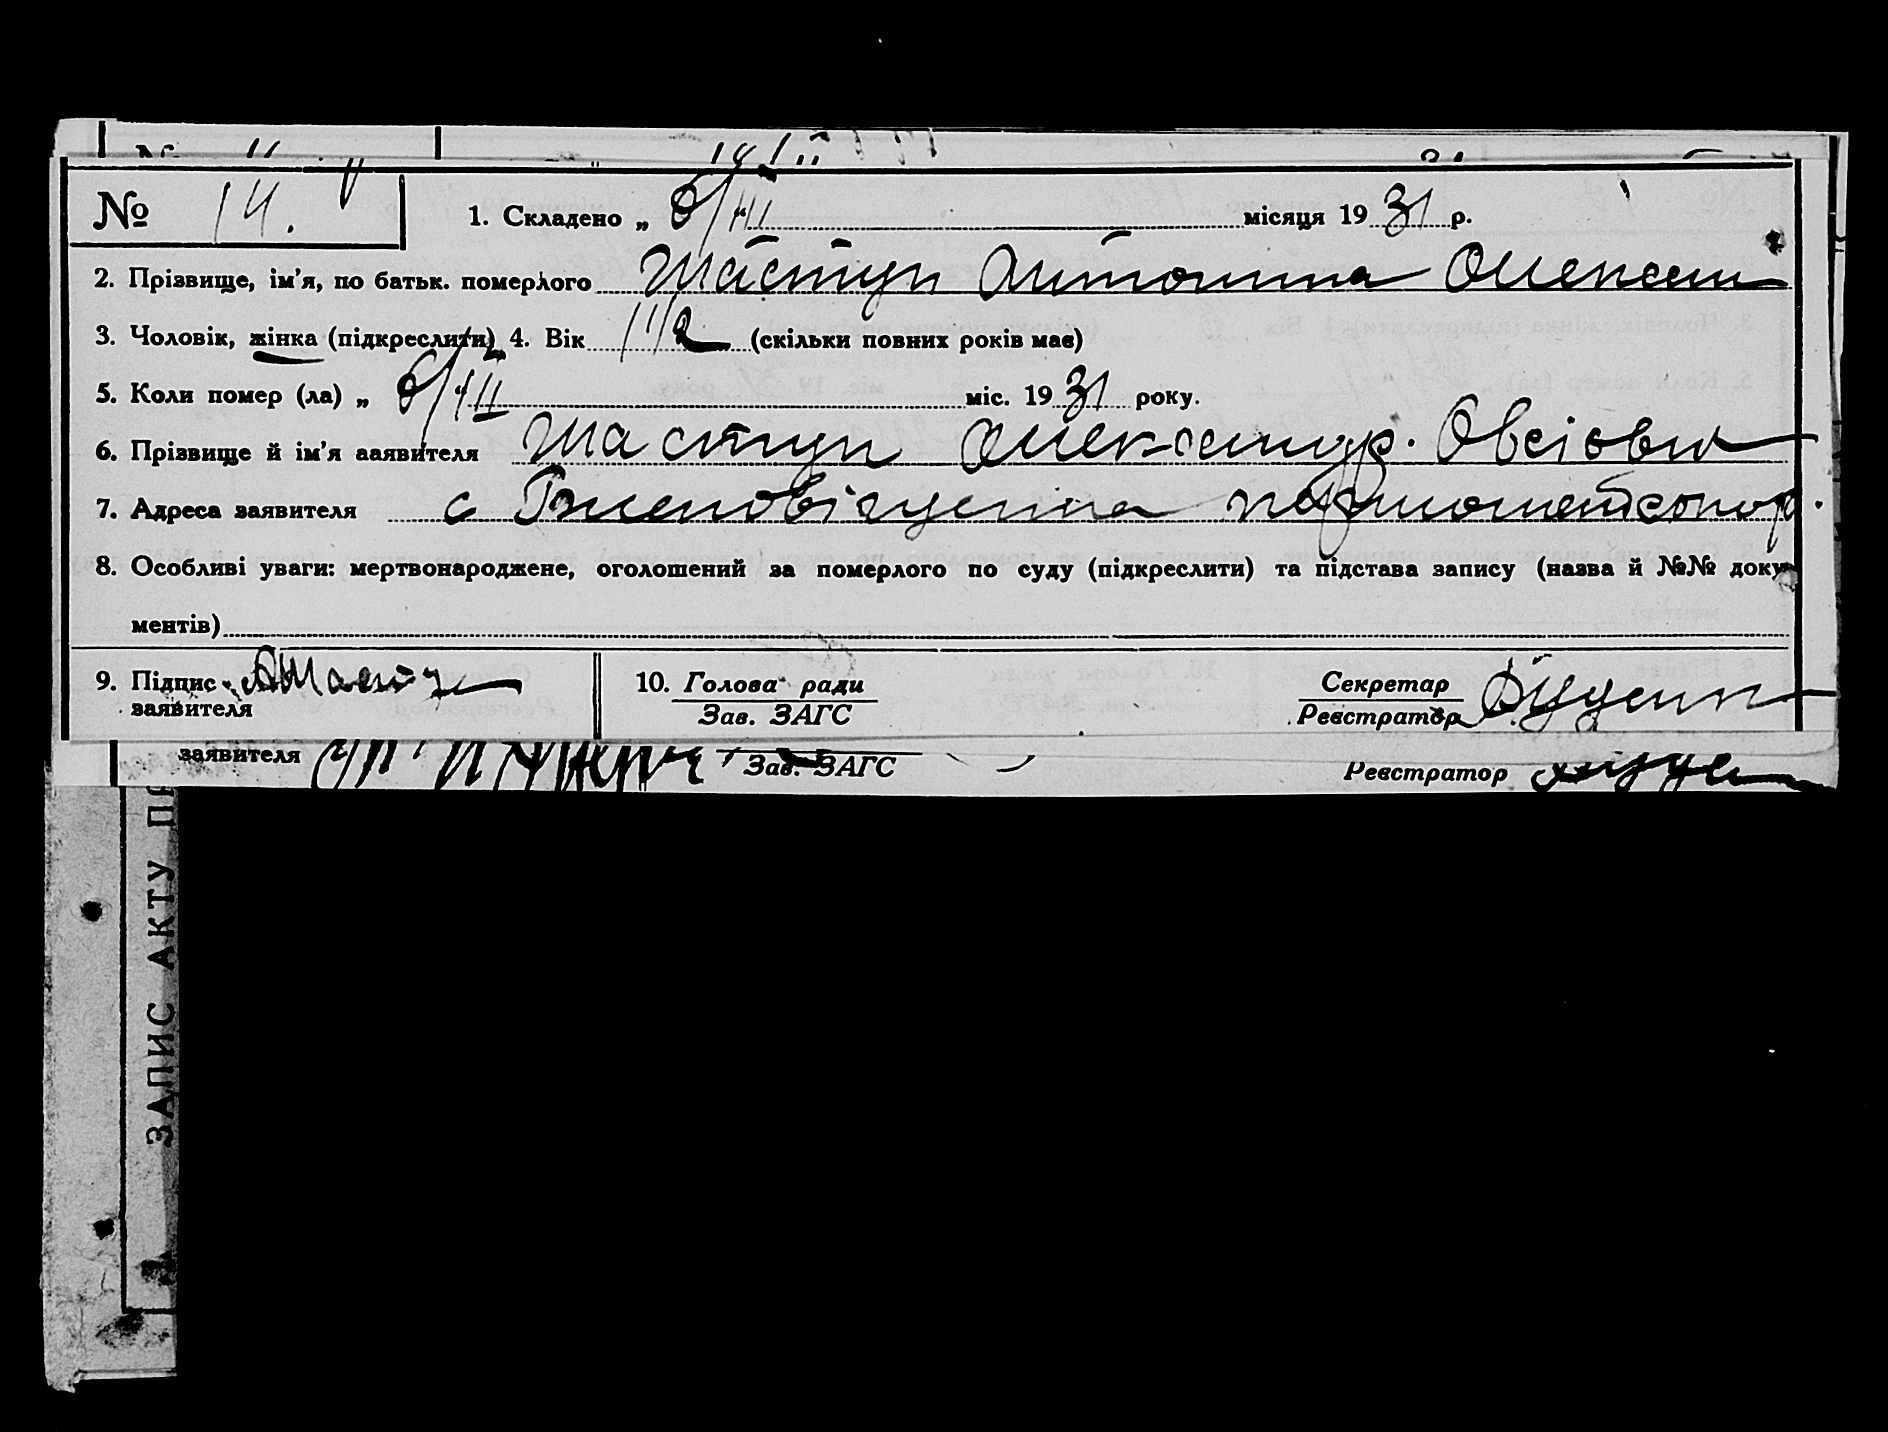 № 14. 1. Складено „ 8/III місяця 1931 р.
2. Прізвище, ім'я, по батьк. померлого Шаступ Антонина Олексан
3. Чоловік, жінка (підкреслити) 4. Вік 1 1/2 (скільки повних років має)
5. Коли помер (ла) „ 8/III міс. 1931 року.
6. Прізвище й ім'я заявителя Шаступ Олександр. Овсіович
7. Адреса заявителя с
8. Особливі уваги: мертвонароджене, оголошений за померлого по суду (підкреслити) та підстава запису (назва й №№ доку
ментів)
9. Підпис заявителя 10. Голова ради Секретар
Зав. ЗАГС Реєстратор
заявителя Зав. ЗАГС Реєстратор
ЗАПИС АКТУ ПР